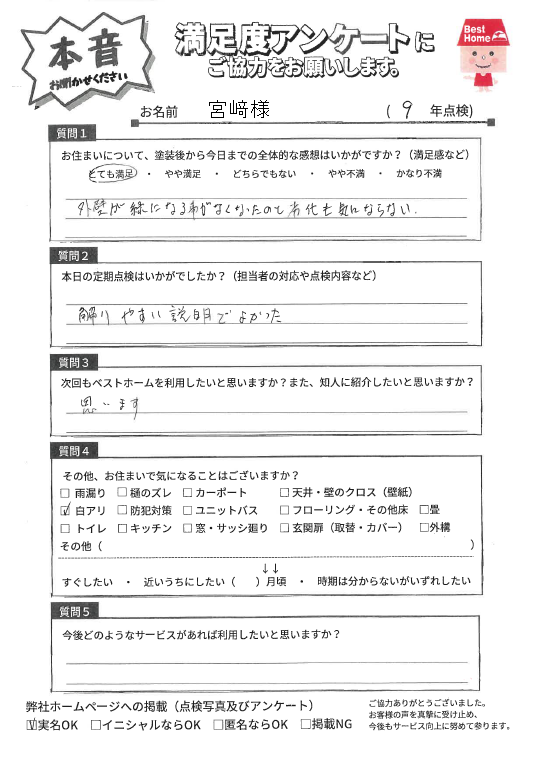 本音
お聞かせください
満足度アンケートに
ご協力をお願いします。
Best
Home
お名前 宮﨑様 ( 9 年点検)
質問1
お住まいについて、塗装後から今日までの全体的な感想はいかがですか?(満足感など)
とても満足 ・ やや満足 ・ どちらでもない ・ やや不満 ・ かなり不満
外壁が緑になる事がなくなったので劣化も気にならない.
質問2
本日の定期点検はいかがでしたか?(担当者の対応や点検内容など)
解りやすい説明でよかった
質問3
次回もベストホームを利用したいと思いますか?また、知人に紹介したいと思いますか?
思います
質問4
その他、お住まいで気になることはございますか?
□ 雨漏り □ 樋のズレ □ カーポート □ 天井・壁のクロス(壁紙)
☑ 白アリ □ 防犯対策 □ ユニットバス □ フローリング・その他床 □畳
□ トイレ □ キッチン □ 窓・サッシ廻り □ 玄関扉(取替・カバー) □外構
その他( )
↓↓
すぐしたい ・ 近いうちにしたい( )月頃 ・ 時期は分からないがいずれしたい
質問5
今後どのようなサービスがあれば利用したいと思いますか?
弊社ホームページへの掲載(点検写真及びアンケート)
☑実名OK □イニシャルならOK □匿名ならOK □掲載NG
ご協力ありがとうございました。
お客様の声を真摯に受け止め、
今後もサービス向上に努めて参ります。